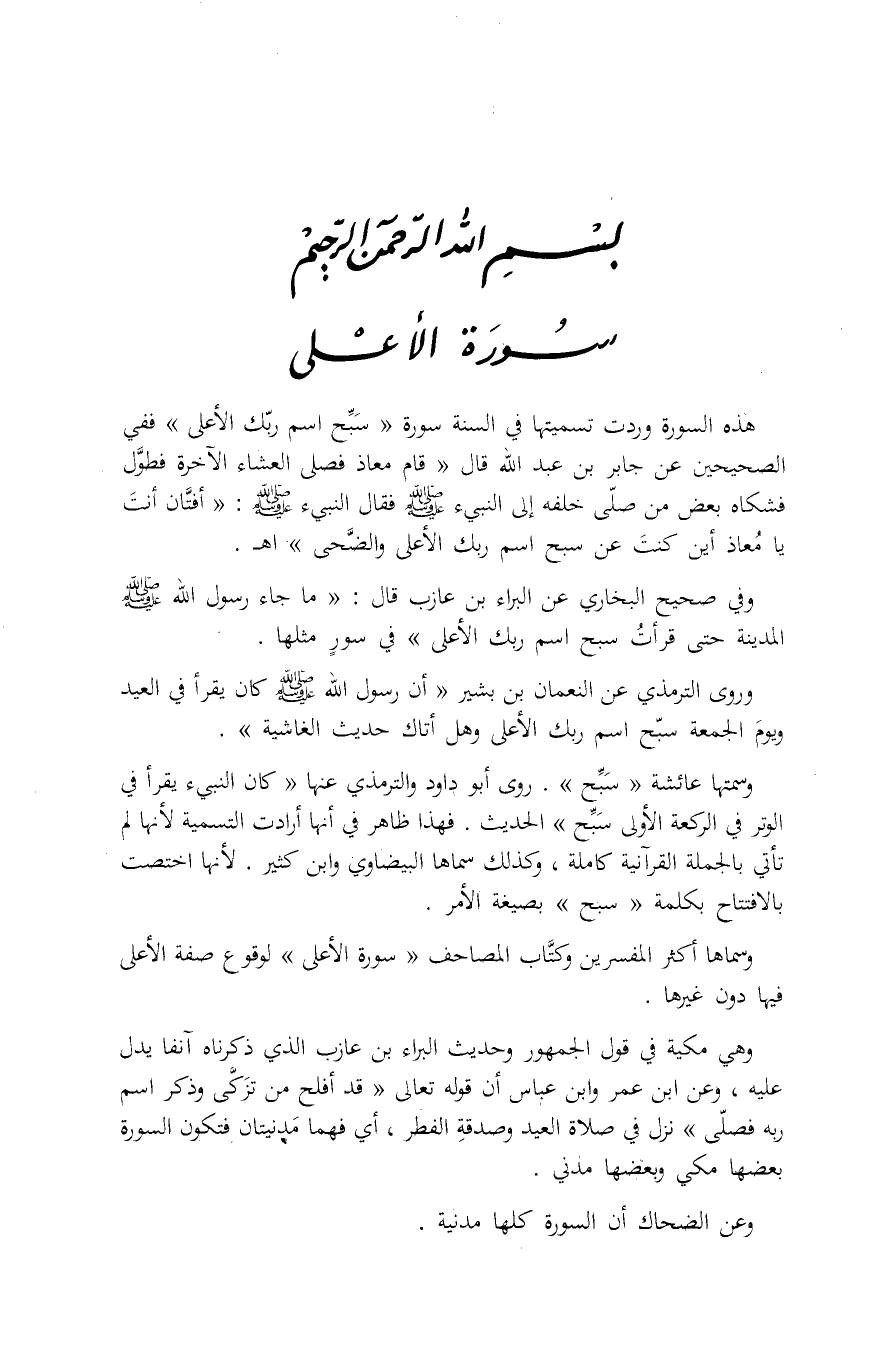 بِسْمِ اللهِ الرَّحْمَنِ الرَّحِيْمِ
سُورَة الأعْلى
هذه السورة وردت تسميتها في السنة سورة « سَبِّح اسم ربّك الأعلى » ففي
الصحيحين عن جابر بن عبد الله قال « قام معاذ فصلى العشاء الآخرة فطوَّل
فشكاه بعض من صلّى خلفه إلى النبيء ﷺ فقال النبيء ﷺ : « أفتَّان أنتَ
يا مُعاذ أين كنتَ عن سبح اسم ربك الأعلى والضَّحى » اهـ .
وفي صحيح البخاري عن البراء بن عازب قال : « ما جاء رسول الله ﷺ
المدينة حتى قرأتُ سبح اسم ربك الأعلى » في سورٍ مثلها .
وروى الترمذي عن النعمان بن بشير « أن رسول الله ﷺ كان يقرأ في العيد
ويومَ الجمعة سبّح اسم ربك الأعلى وهل أتاك حديث الغاشية » .
وسمتها عائشة « سَبِّح » . روى أبو داود والترمذي عنها « كان النبيء يقرأ في
الوتر في الركعة الأولى سَبِّح » الحديث . فهذا ظاهر في أنها أرادت التسمية لأنها لم
تأتي بالجملة القرآنية كاملة ، وكذلك سماها البيضاوي وابن كثير . لأنها اختصت
بالافتتاح بكلمة « سبح » بصيغة الأمر .
وسماها أكثر المفسرين وكتَّاب المصاحف « سورة الأعلى » لوقوع صفة الأعلى
فيها دون غيرها .
وهي مكية في قول الجمهور وحديث البراء بن عازب الذي ذكرناه آنفا يدل
عليه ، وعن ابن عمر وابن عباس أن قوله تعالى « قد أفلح من تزَكَّى وذكر اسم
ربه فصلّى » نزل في صلاة العيد وصدقةِ الفطر ، أي فهما مَدنيتان فتكون السورة
بعضها مكي وبعضها مدني .
وعن الضحاك أن السورة كلها مدنية .